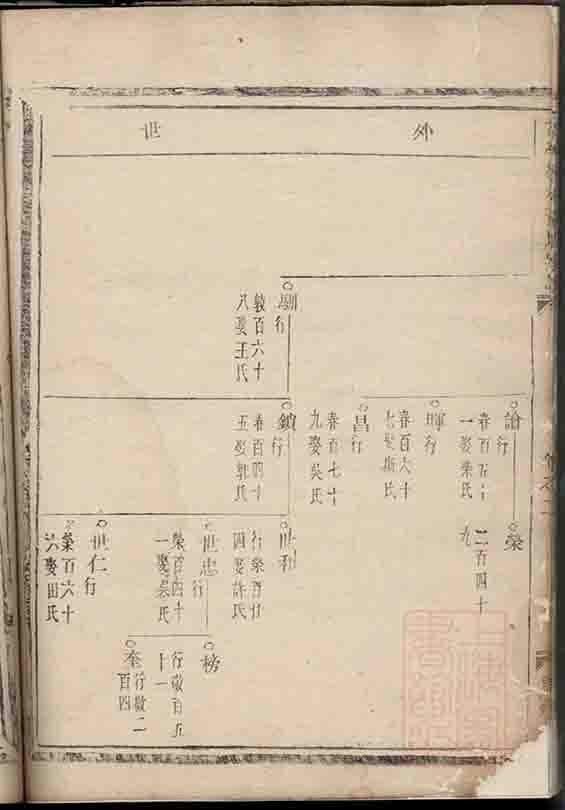 外
世
諭行
春百五十
一娶柴氏
榮
二百四十
九
暉行
春百六十
七娶斯氏
昌行
春百七十
九娶吳氏
馴行
敦百六十
八娶王氏
鎖行
春百四十
五娶郭氏
世利
行榮百廿
四娶許氏
世忠行
榮百四十
一娶吴氏
世仁行
榮百六十
六娶田氏
榜
行敬百五
十一
奎行敬二
百四